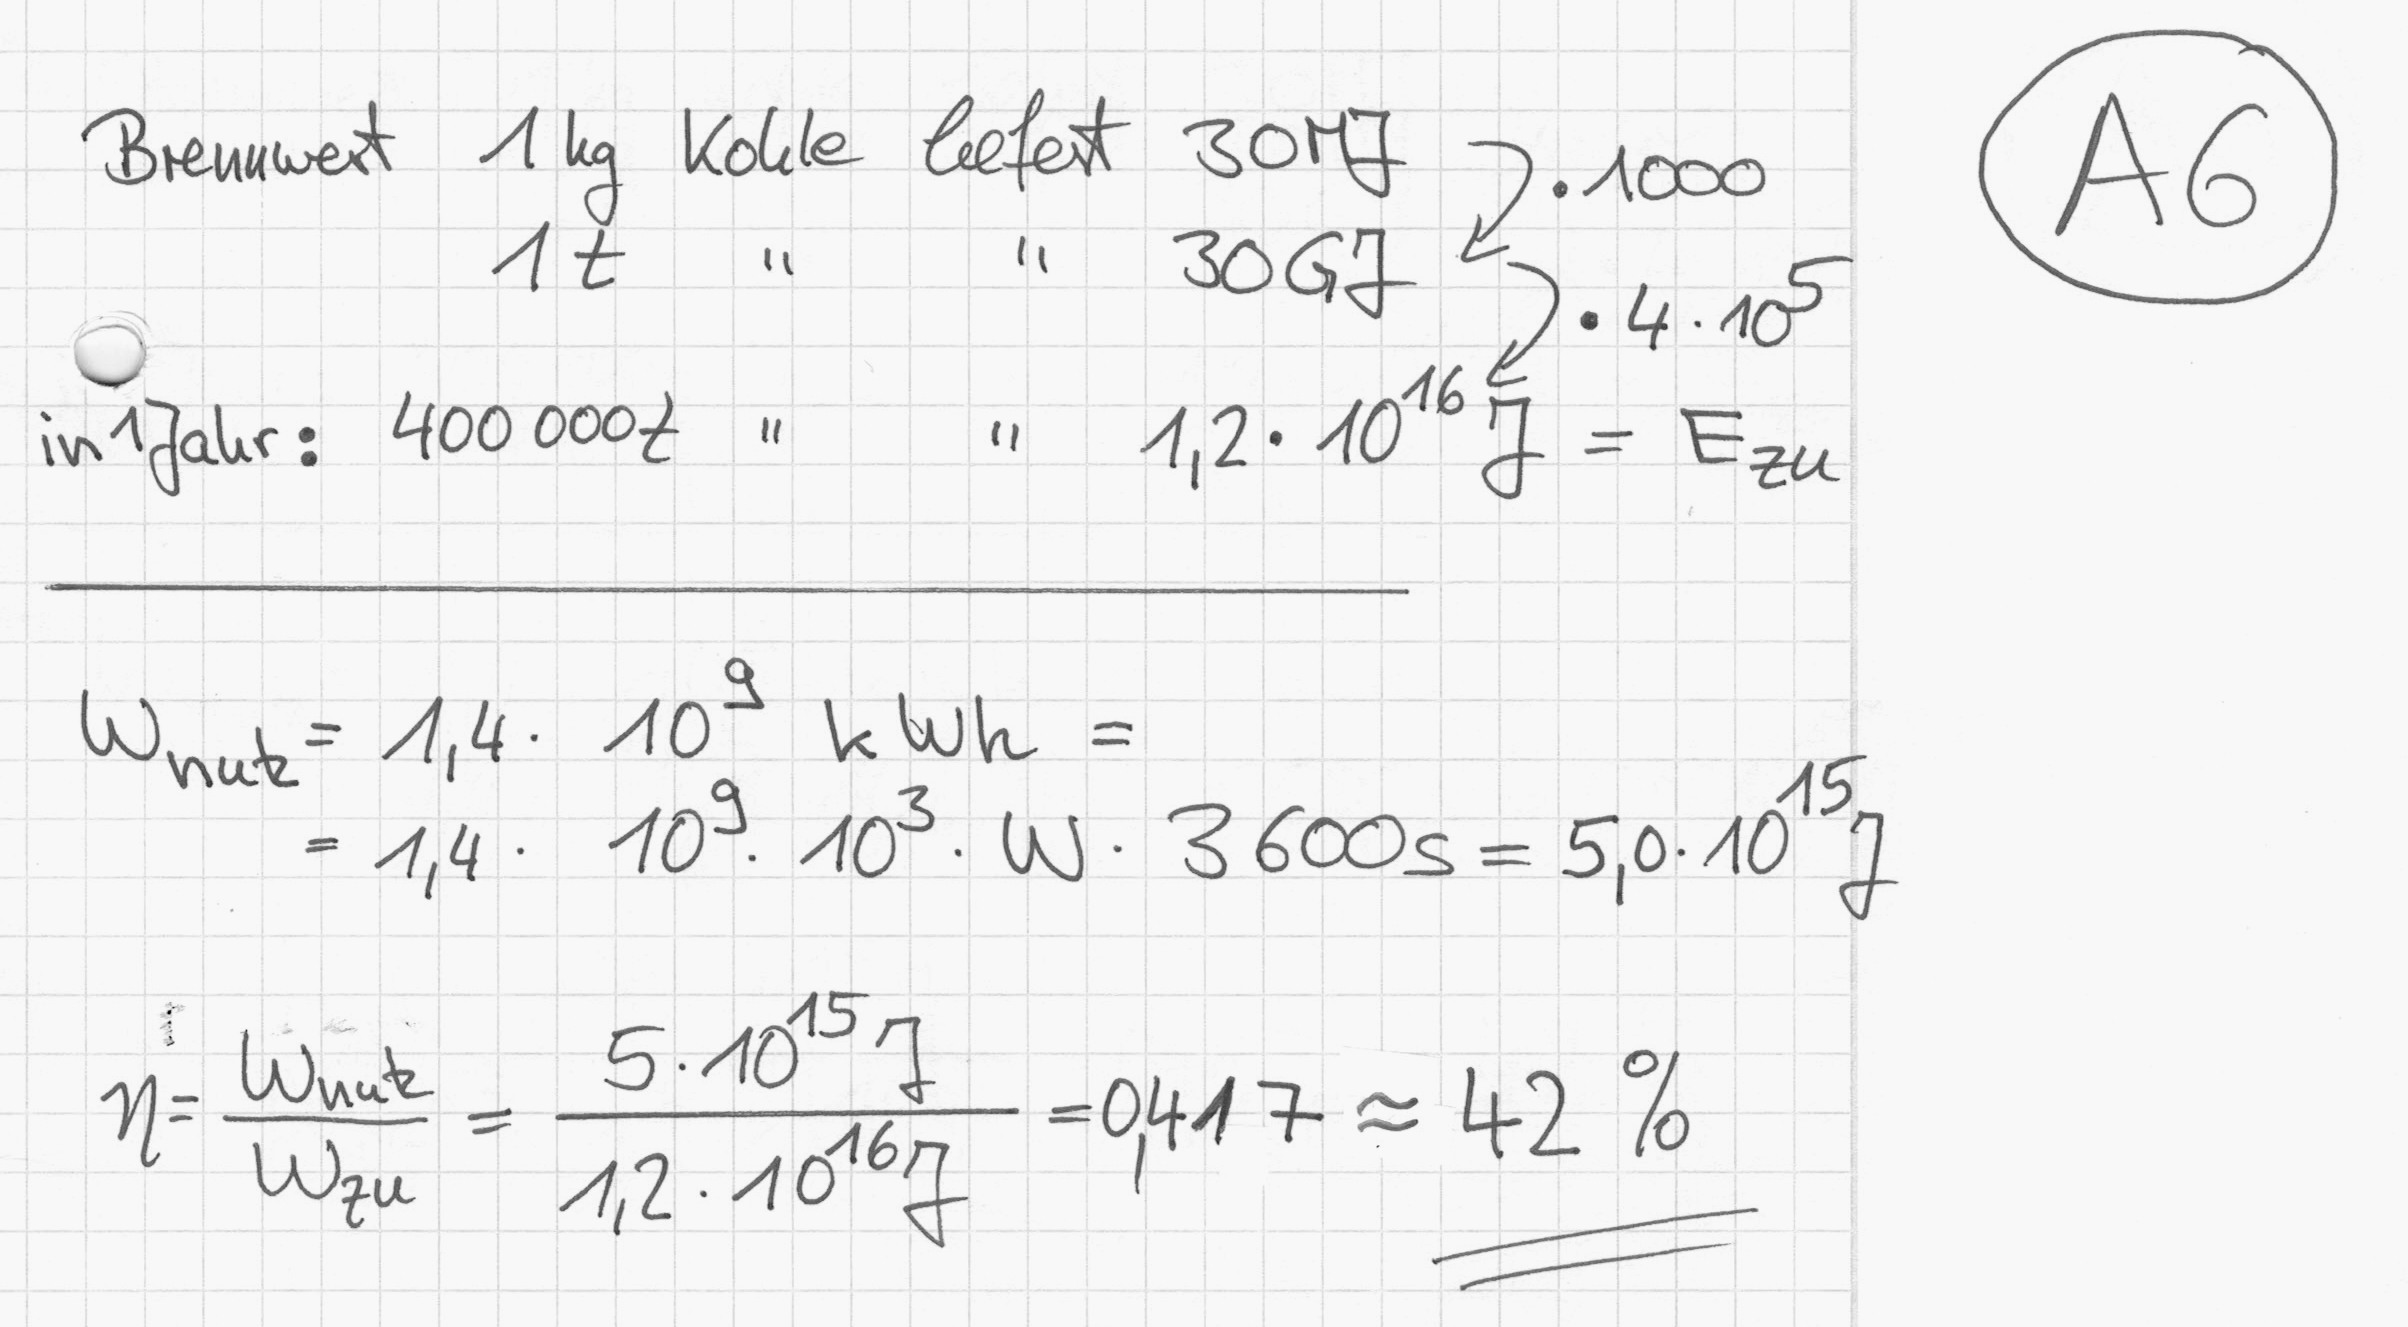 Brennwert 1 kg Kohle liefert 30MJ
· 1000
A6
1 t " " 30GJ
· 4 · 10⁵
in 1 Jahr: 400 000t " " 1,2 · 10¹⁶ J = E_zu
W_nutz = 1,4 · 10⁹ kWh =
= 1,4 · 10⁹ · 10³ · W · 3600s = 5,0 · 10¹⁵ J
η = W_nutz / W_zu = 5 · 10¹⁵ J / 1,2 · 10¹⁶ J = 0,417 ≈ 42 %